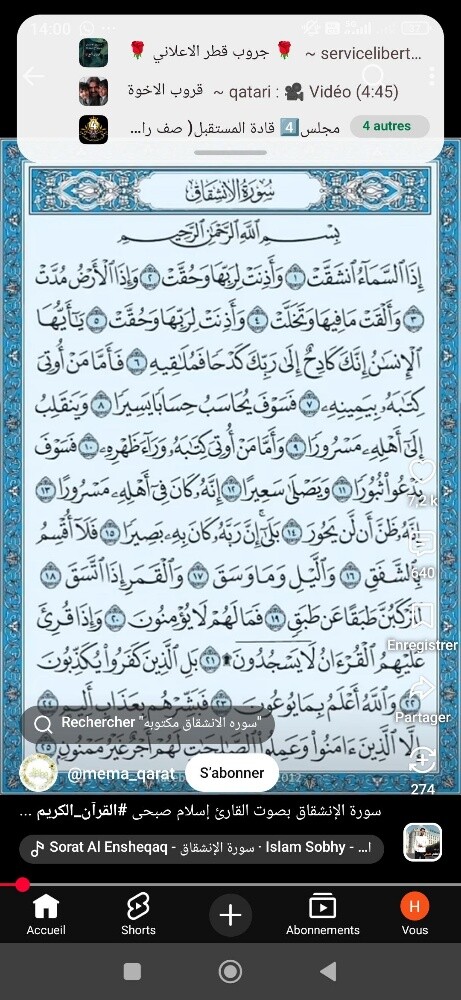 14:00
🌹 جروب قطر الاعلاني 🌹 ~ servicelibert...
قروب الاخوة ~ qatari : 🎥 Vidéo (4:45)
مجلس4️⃣ قادة المستقبل( صف را... 4 autres
سُورَةُ الانشِقَاقِ
بِسْمِ اللَّهِ الرَّحْمَٰنِ الرَّحِيمِ
إِذَا ٱلسَّمَآءُ ٱنشَقَّتْ ١ وَأَذِنَتْ لِرَبِّهَا وَحُقَّتْ ٢ وَإِذَا ٱلْأَرْضُ مُدَّتْ
٣ وَأَلْقَتْ مَا فِيهَا وَتَخَلَّتْ ٤ وَأَذِنَتْ لِرَبِّهَا وَحُقَّتْ ٥ يَٰٓأَيُّهَا
ٱلْإِنسَٰنُ إِنَّكَ كَادِحٌ إِلَىٰ رَبِّكَ كَدْحًا فَمُلَٰقِيهِ ٦ فَأَمَّا مَنْ أُوتِىَ
كِتَٰبَهُۥ بِيَمِينِهِۦ ٧ فَسَوْفَ يُحَاسَبُ حِسَابًا يَسِيرًا ٨ وَيَنقَلِبُ
إِلَىٰٓ أَهْلِهِۦ مَسْرُورًا ٩ وَأَمَّا مَنْ أُوتِىَ كِتَٰبَهُۥ وَرَآءَ ظَهْرِهِۦ ١٠ فَسَوْفَ
يَدْعُوا۟ ثُبُورًا ١١ وَيَصْلَىٰ سَعِيرًا ١٢ إِنَّهُۥ كَانَ فِىٓ أَهْلِهِۦ مَسْرُورًا ١٣
إِنَّهُۥ ظَنَّ أَن لَّن يَحُورَ ١٤ بَلَىٰٓ إِنَّ رَبَّهُۥ كَانَ بِهِۦ بَصِيرًا ١٥ فَلَآ أُقْسِمُ
بِٱلشَّفَقِ ١٦ وَٱلَّيْلِ وَمَا وَسَقَ ١٧ وَٱلْقَمَرِ إِذَا ٱتَّسَقَ ١٨
لَتَرْكَبُنَّ طَبَقًا عَن طَبَقٍ ١٩ فَمَا لَهُمْ لَا يُؤْمِنُونَ ٢٠ وَإِذَا قُرِئَ
عَلَيْهِمُ ٱلْقُرْءَانُ لَا يَسْجُدُونَ ۩ ٢١ بَلِ ٱلَّذِينَ كَفَرُوا۟ يُكَذِّبُونَ
٢٢ وَٱللَّهُ أَعْلَمُ بِمَا يُوعُونَ ٢٣ فَبَشِّرْهُم بِعَذَابٍ أَلِيمٍ ٢٤
إِلَّا ٱلَّذِينَ ءَامَنُوا۟ وَعَمِلُوا۟ ٱلصَّٰلِحَٰتِ لَهُمْ أَجْرٌ غَيْرُ مَمْنُونٍ ٢٥
7,2 k
640
Enregistrer
Partager
274
Rechercher "سوره الانشقاق مكتوبه"
@mema_qarat S'abonner
2012
سورة الإنشقاق بصوت القارئ إسلام صبحى #القرآن_الكريم ...
Sorat Al Ensheqaq - سورة الإنشقاق · Islam Sobhy - ا...
Accueil
Shorts
Abonnements
H
Vous